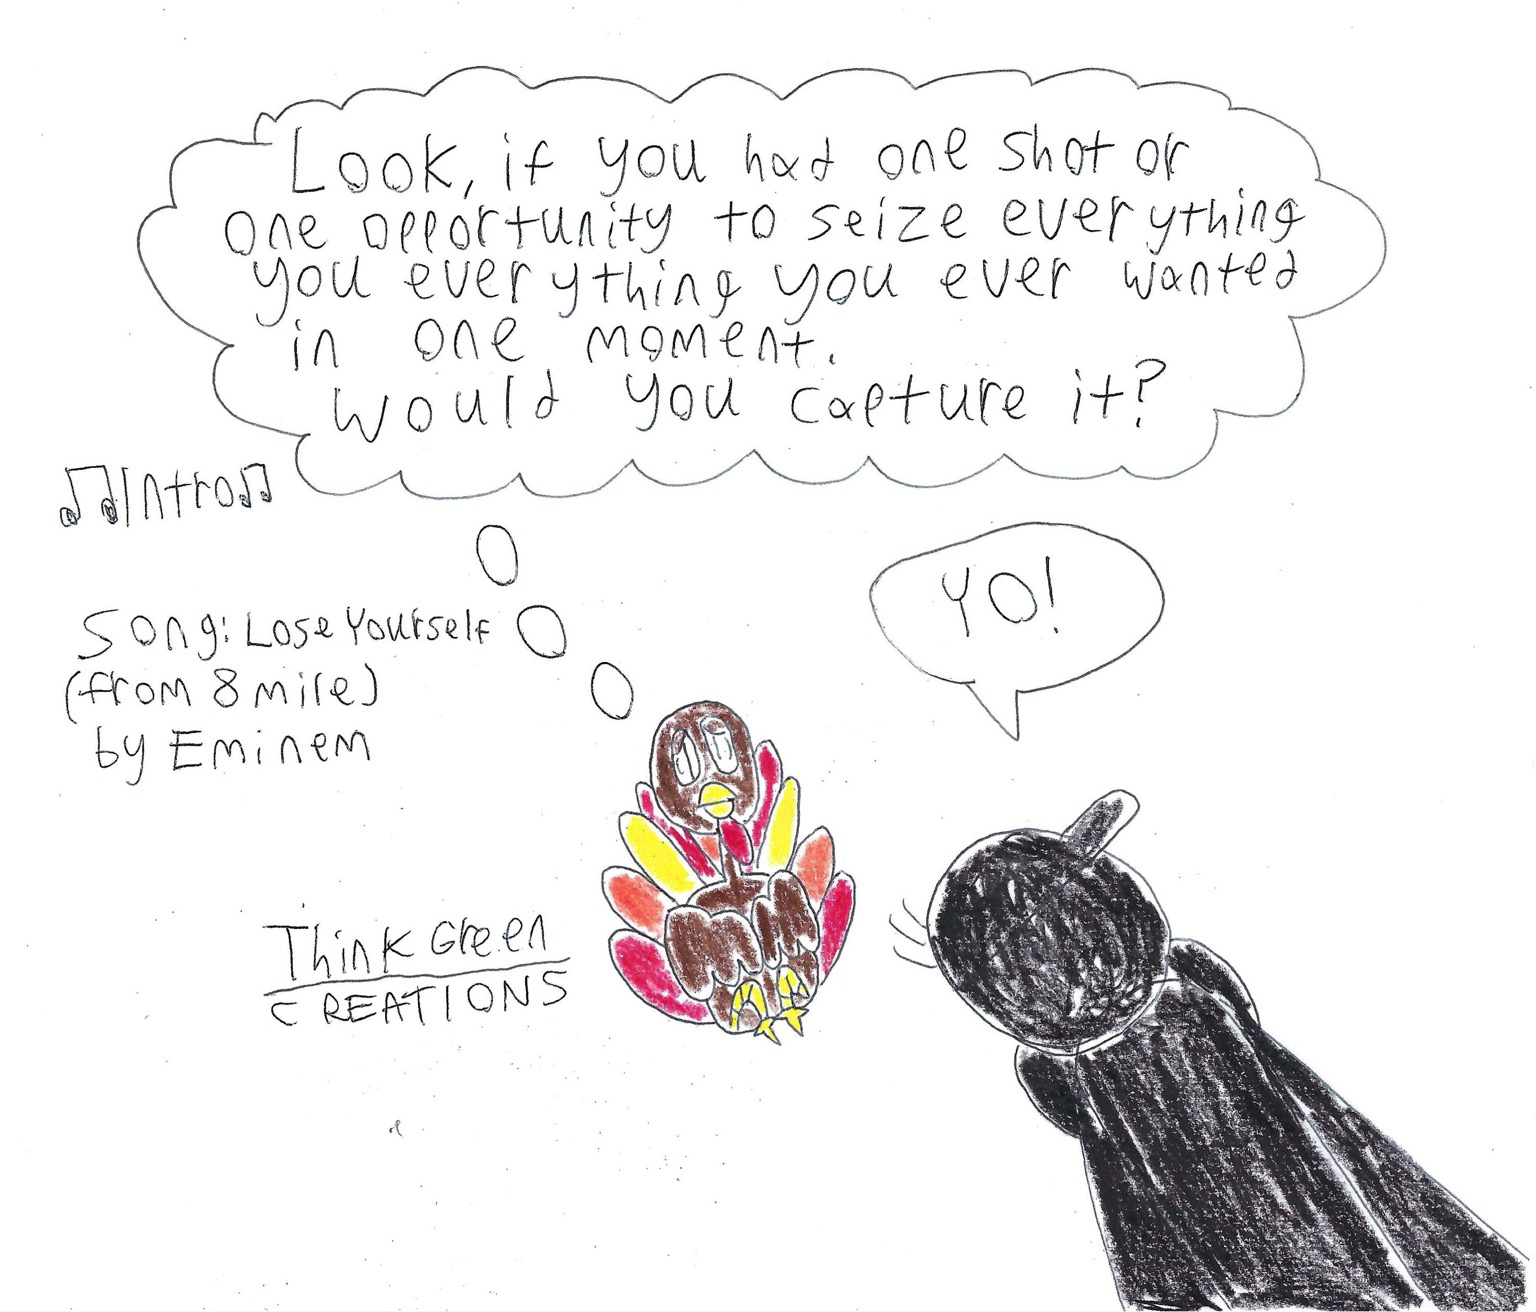 Look, if you had one shot or
one opportunity to seize everything
you everything you ever wanted
in one moment.
Would you capture it?
♫Intro♫
YO!
Song: Lose Yourself
(from 8 mile)
by Eminem
Think Green
CREATIONS